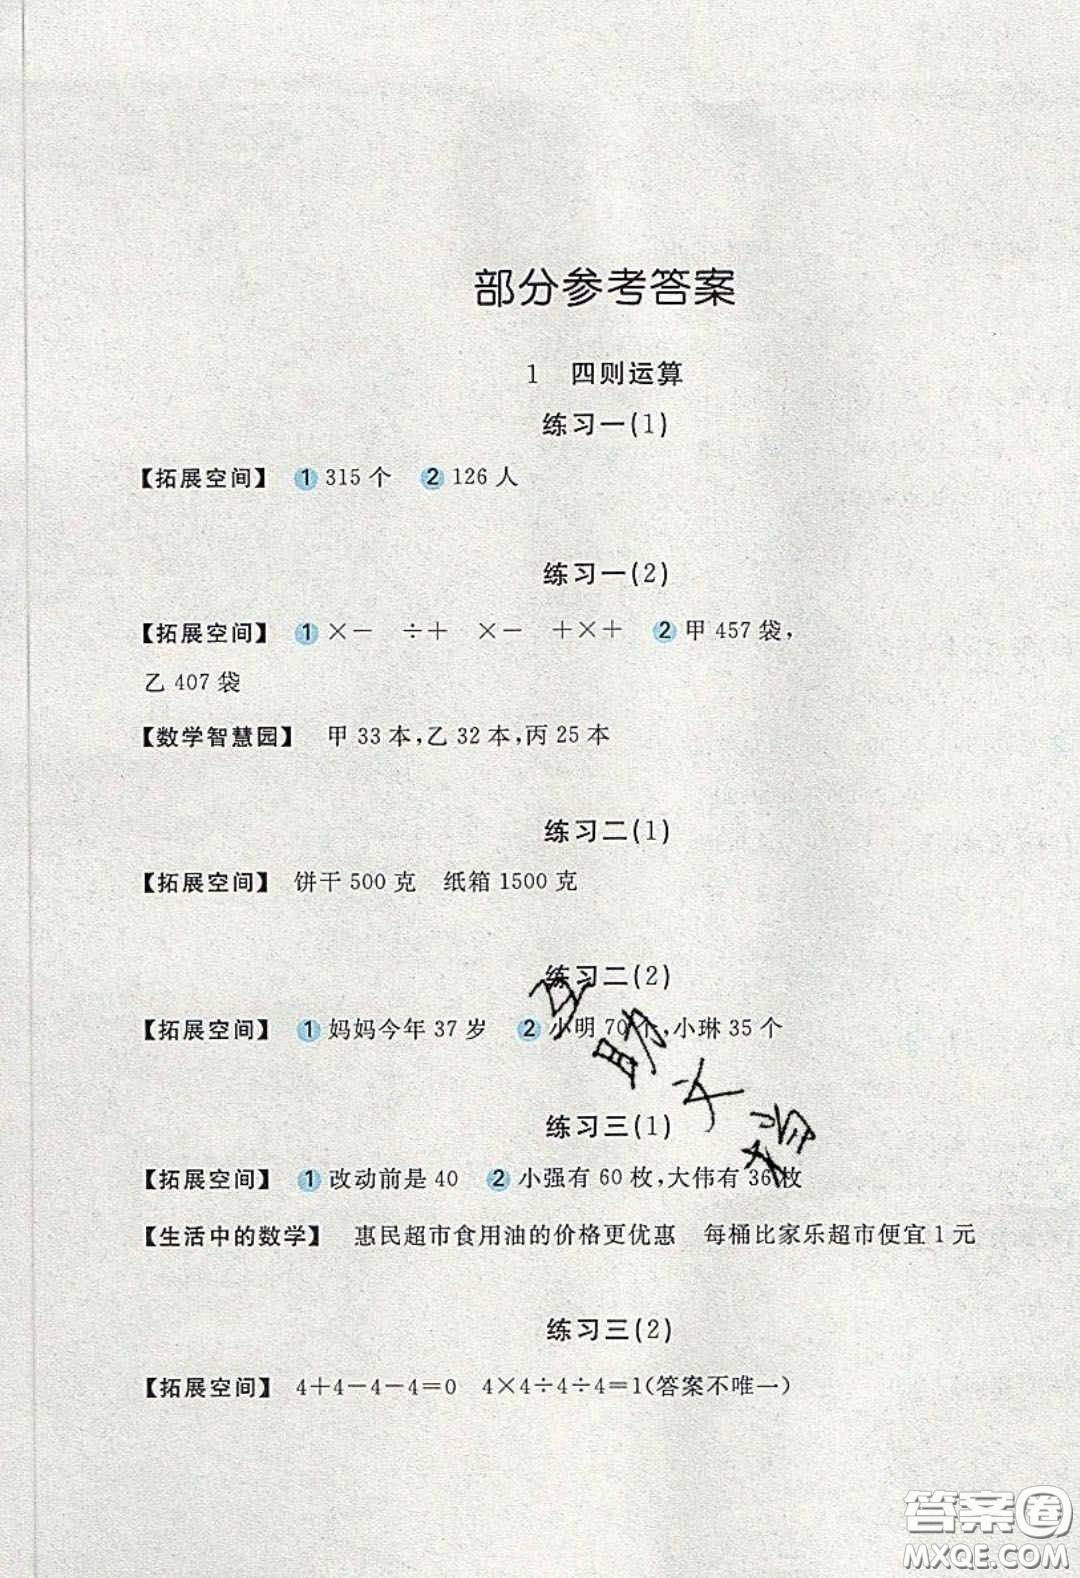 部分参考答案
1 四则运算
练习一(1)
【拓展空间】 1 315个 2 126人
练习一(2)
【拓展空间】 1 ×- ÷+ ×- +×+ 2 甲457袋,
乙407袋
【数学智慧园】 甲33本,乙32本,丙25本
练习二(1)
【拓展空间】 饼干500克 纸箱1500克
练习二(2)
【拓展空间】 1 妈妈今年37岁 2 小明70个,小琳35个
练习三(1)
【拓展空间】 1 改动前是40 2 小强有60枚,大伟有36枚
【生活中的数学】 惠民超市食用油的价格更优惠 每桶比家乐超市便宜1元
练习三(2)
【拓展空间】 4+4-4-4=0 4×4÷4÷4=1(答案不唯一)
答案圈
MXQE.COM